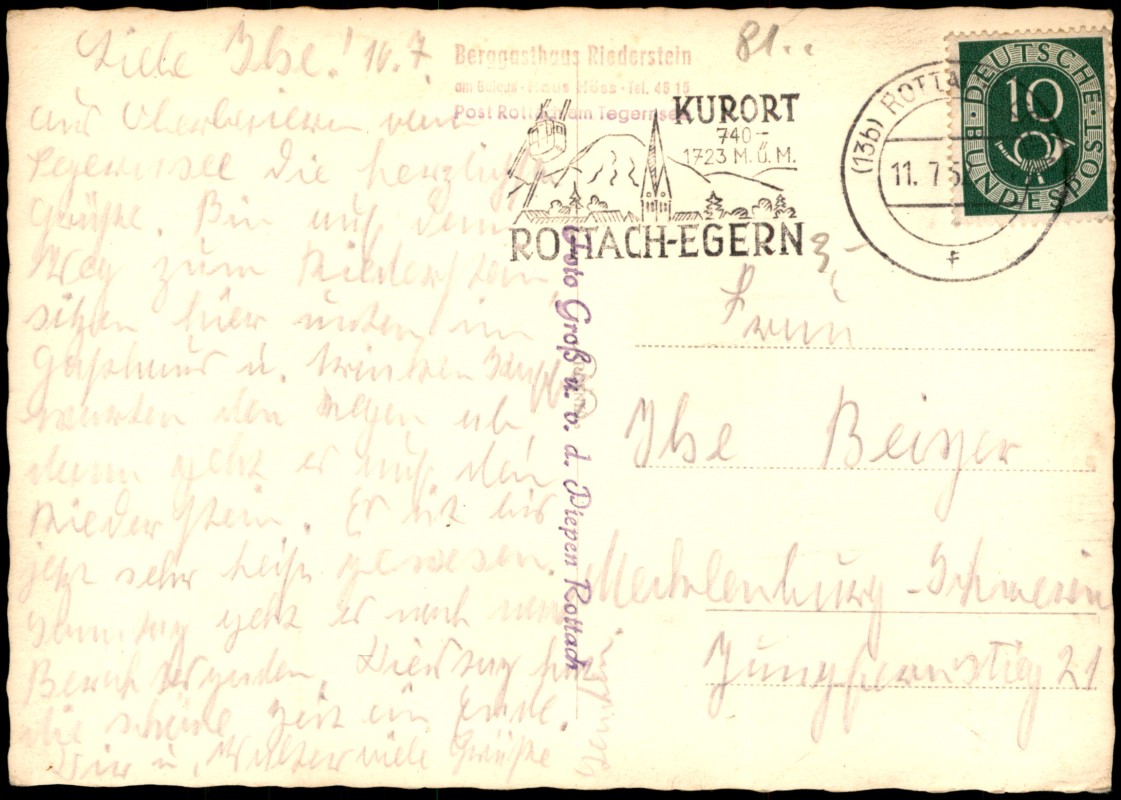 Liebe Ilse! 10.7.
aus Oberbaiern vom
Tegernsee die herzlichsten
Grüße. Bin auf dem
Weg zum Riederstein,
sitzen hier unten im
Gasthaus u. trinken
warten den Regen ab
dann geht es auf den
Riederstein. Es ist bis
jetzt sehr heiß gewesen.
Sonntag geht es nach
Berchtesgaden. Dienstag hat
die schöne Zeit ein Ende.
Dir u. Walter viele Grüße
Berggasthaus Riederstein
am Galaun · Haus Höss · Tel. 48 15
Post Rottach am Tegernsee
81..
KURORT
740-
1723 M.Ü.M.
ROTTACH-EGERN
(13b) ROTTA
11. 7. 5
f
DEUTSCHE BUNDESPOST
10
3,-
Foto Groß u. v. d. Piepen Rottach
Frau
Ilse Beiyer
Mecklenburg-Schwerin
Jungfernstieg 21